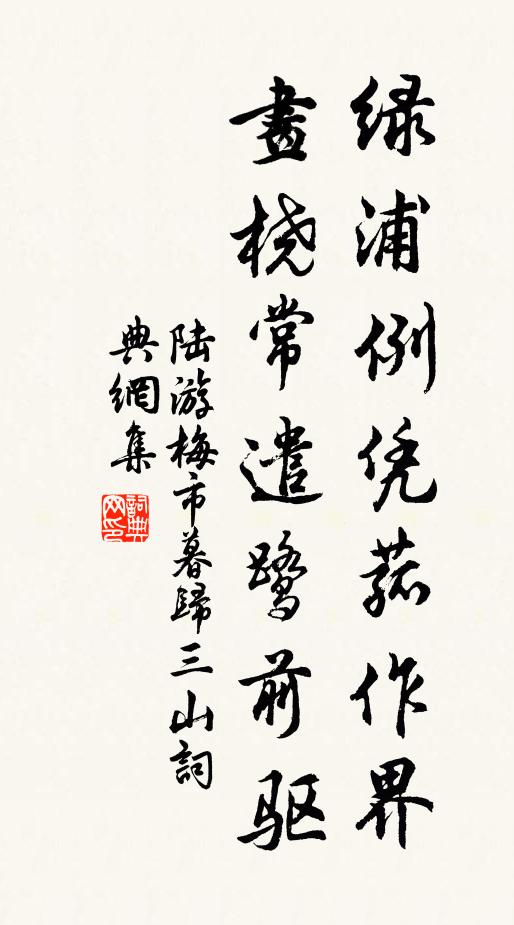 绿浦例凭菰作界
畫桡常遣鹭前驱
陆游梅市暮歸三山詞
典網集
詞典
网印